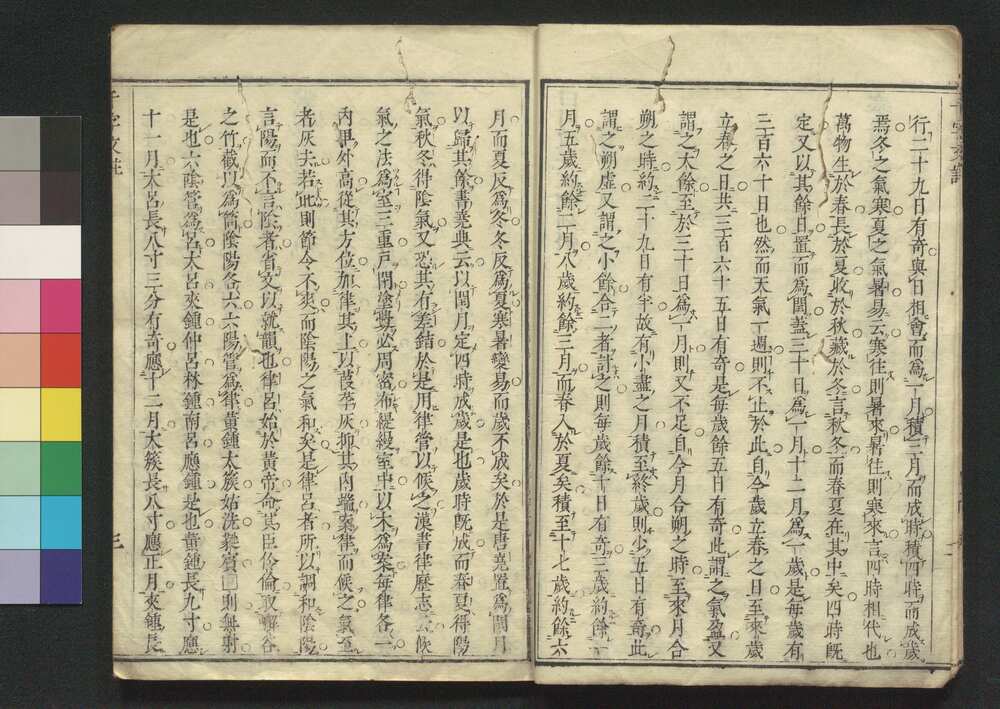 行二十九日有奇與日相會而為一月積三月而成時積四時而成歲
焉冬之氣寒夏之氣暑易云寒往則暑來暑往則寒來言四時相代也
萬物生於春長於夏收於秋藏於冬言秋冬而春夏在其中矣四時既
定又以其餘日置而為閏蓋三十日為一月十二月為一歲是每歲有
三百六十日也然而天氣一週則不止於此自今歲立春之日至來歲
立春之日共三百六十五日有奇是每歲餘五日有奇此謂之氣盈又
謂之大餘至於三十日為一月則又不足自今月合朔之時至來月合
朔之時約二十九日有半故有小盡之月積至終歲則少五日有奇此
謂之朔虛又謂之小餘合二者計之則每歲餘十日有奇三歲約餘一
月五歲約餘二月八歲約餘三月而春入於夏矣積至十七歲約餘六
月而夏反為冬冬反為夏寒暑變易而歲不成矣於是唐堯置為閏月
以歸其餘書堯典云以閏月定四時成歲是也歲時既成而春夏得陽
氣秋冬得陰氣又恐其有差錯於是用律管以候之漢書律歷志云候
氣之法為室三重戶閉塗釁必周密布緹縵室中以木為案每律各一
內庳外高從其方位加律其上以葭莩灰抑其內端案律而候之氣至
者灰去若此則節令不爽而陰陽之氣和矣是律呂者所以調和陰陽
言陽而不言陰者省文以就韻也律呂始於黃帝命其臣伶倫取嶰谷
之竹截以為筒陰陽各六六陽管為律黃鍾太簇姑洗蕤賓則無射
是也六陰管為呂大呂夾鍾仲呂林鍾南呂應鍾是也黃鍾長九寸應
十一月大呂長八寸三分有奇應十二月太簇長八寸應正月夾鍾長
千字文註
三